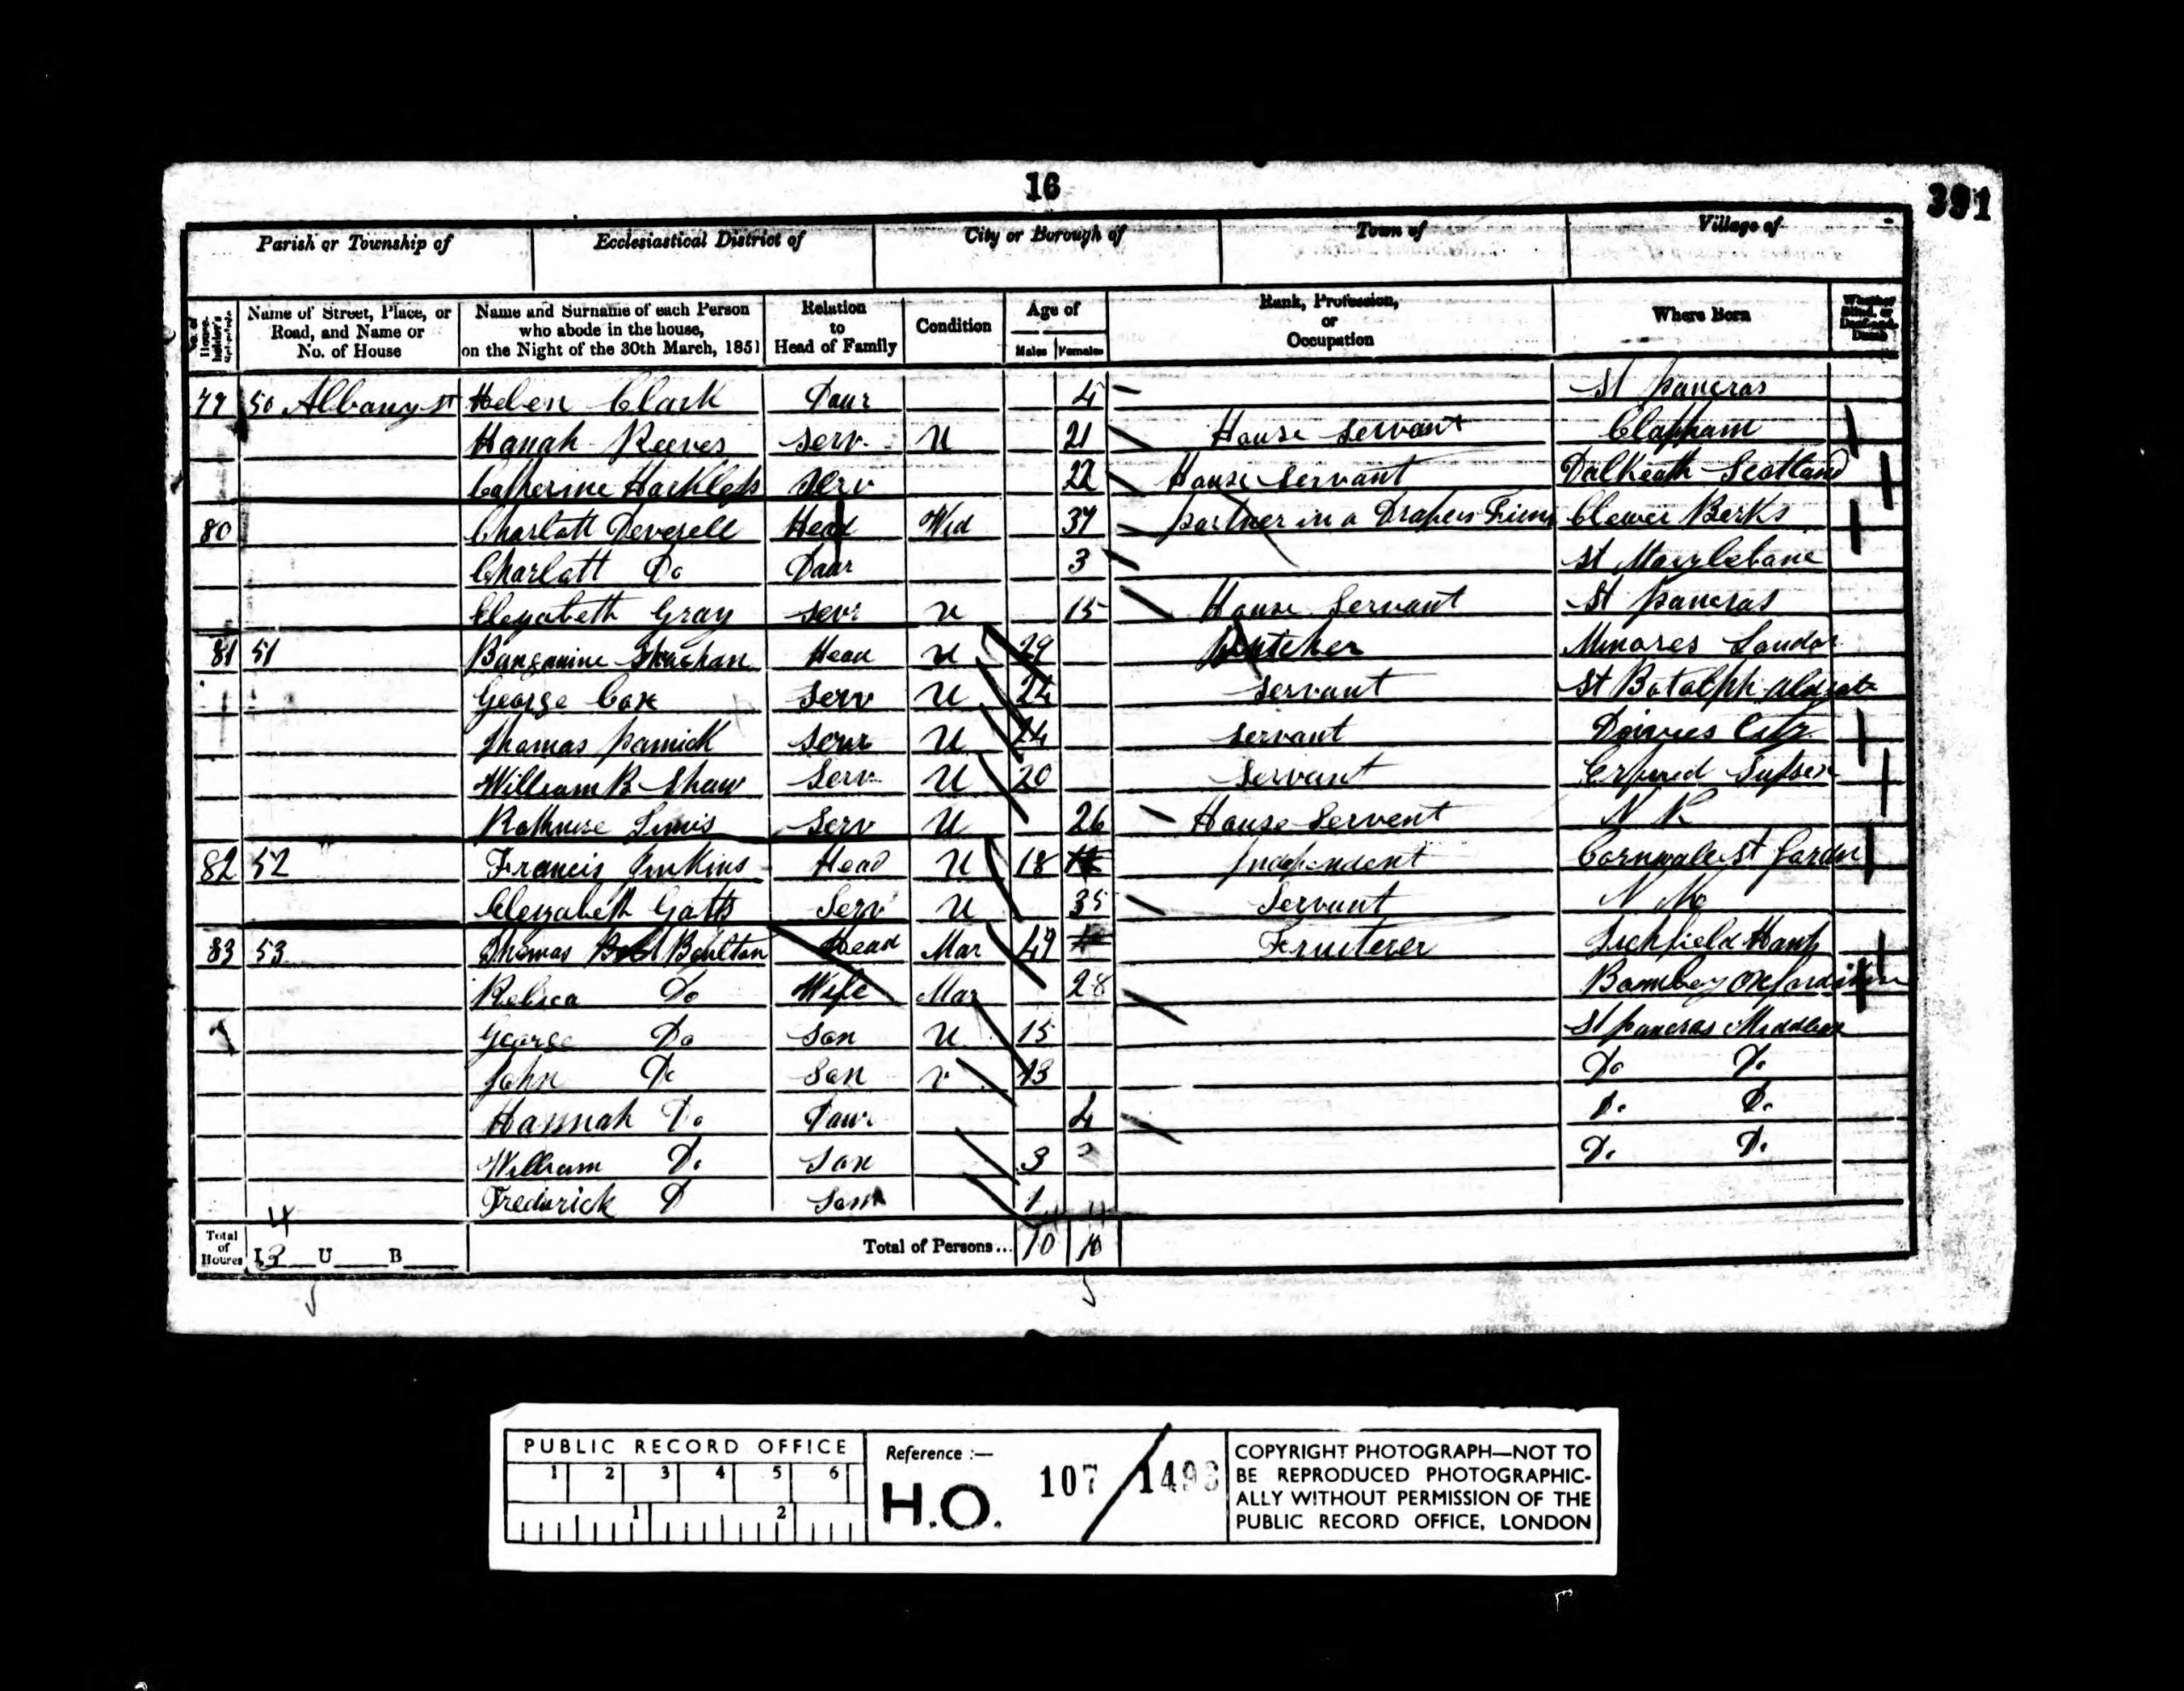 16
391
Parish or Township of Ecclesiastical District of City or Borough of Town of Village of
No. of House-holder's Schedule Name of Street, Place, or Road, and Name or No. of House Name and Surname of each Person who abode in the house, on the Night of the 30th March, 1851 Relation to Head of Family Condition Age of Males Females Rank, Profession, or Occupation Where Born Whether Blind, or Deaf-and-Dumb
79 50 Albany st Helen Clark Daur 4 St Pancras
Hanah Reeves Serv U 21 House Servant Clapham
Catherine Serv 22 House Servant Dalkeath Scotland
80 Charlott Deverell Head Wid 37 partner in a Drapers Firm Clewer Berks
Charlatt Do Daur 3 St Marylebane
Elezabeth Gray Serv U 15 House Servant St Pancras
81 51 Head U 29 Butcher Minores London
George Cox Serv U 24 Servant St Botolph Aldgate
Thomas Serv U 24 Servant
William B Shaw Serv U 20 Servant Sussex
Serv U 26 House Servent N K
82 52 Francis Jenkins Head U 18 Independent
Elezabeth Gatts Serv U 35 Servant
83 53 Thomas Boulton Head Mar 49 Fruterer
Rebeca Do Wife Mar 28
George Do Son U 15 St Pancras Middlesex
John Do Son U 13 Do Do
Hannah Do Daur 4 Do Do
William Do Son 3 Do Do
Frederick D Son 1
4 11
Total of Houses I 3 U B Total of Persons... 10 10
PUBLIC RECORD OFFICE
1 2 3 4 5 6
1 2
Reference :—
H.O. 107 / 1493
COPYRIGHT PHOTOGRAPH—NOT TO
BE REPRODUCED PHOTOGRAPHIC-
ALLY WITHOUT PERMISSION OF THE
PUBLIC RECORD OFFICE, LONDON